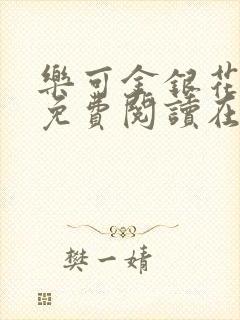 樂可金銀花
免費閱讀在
樊一婧